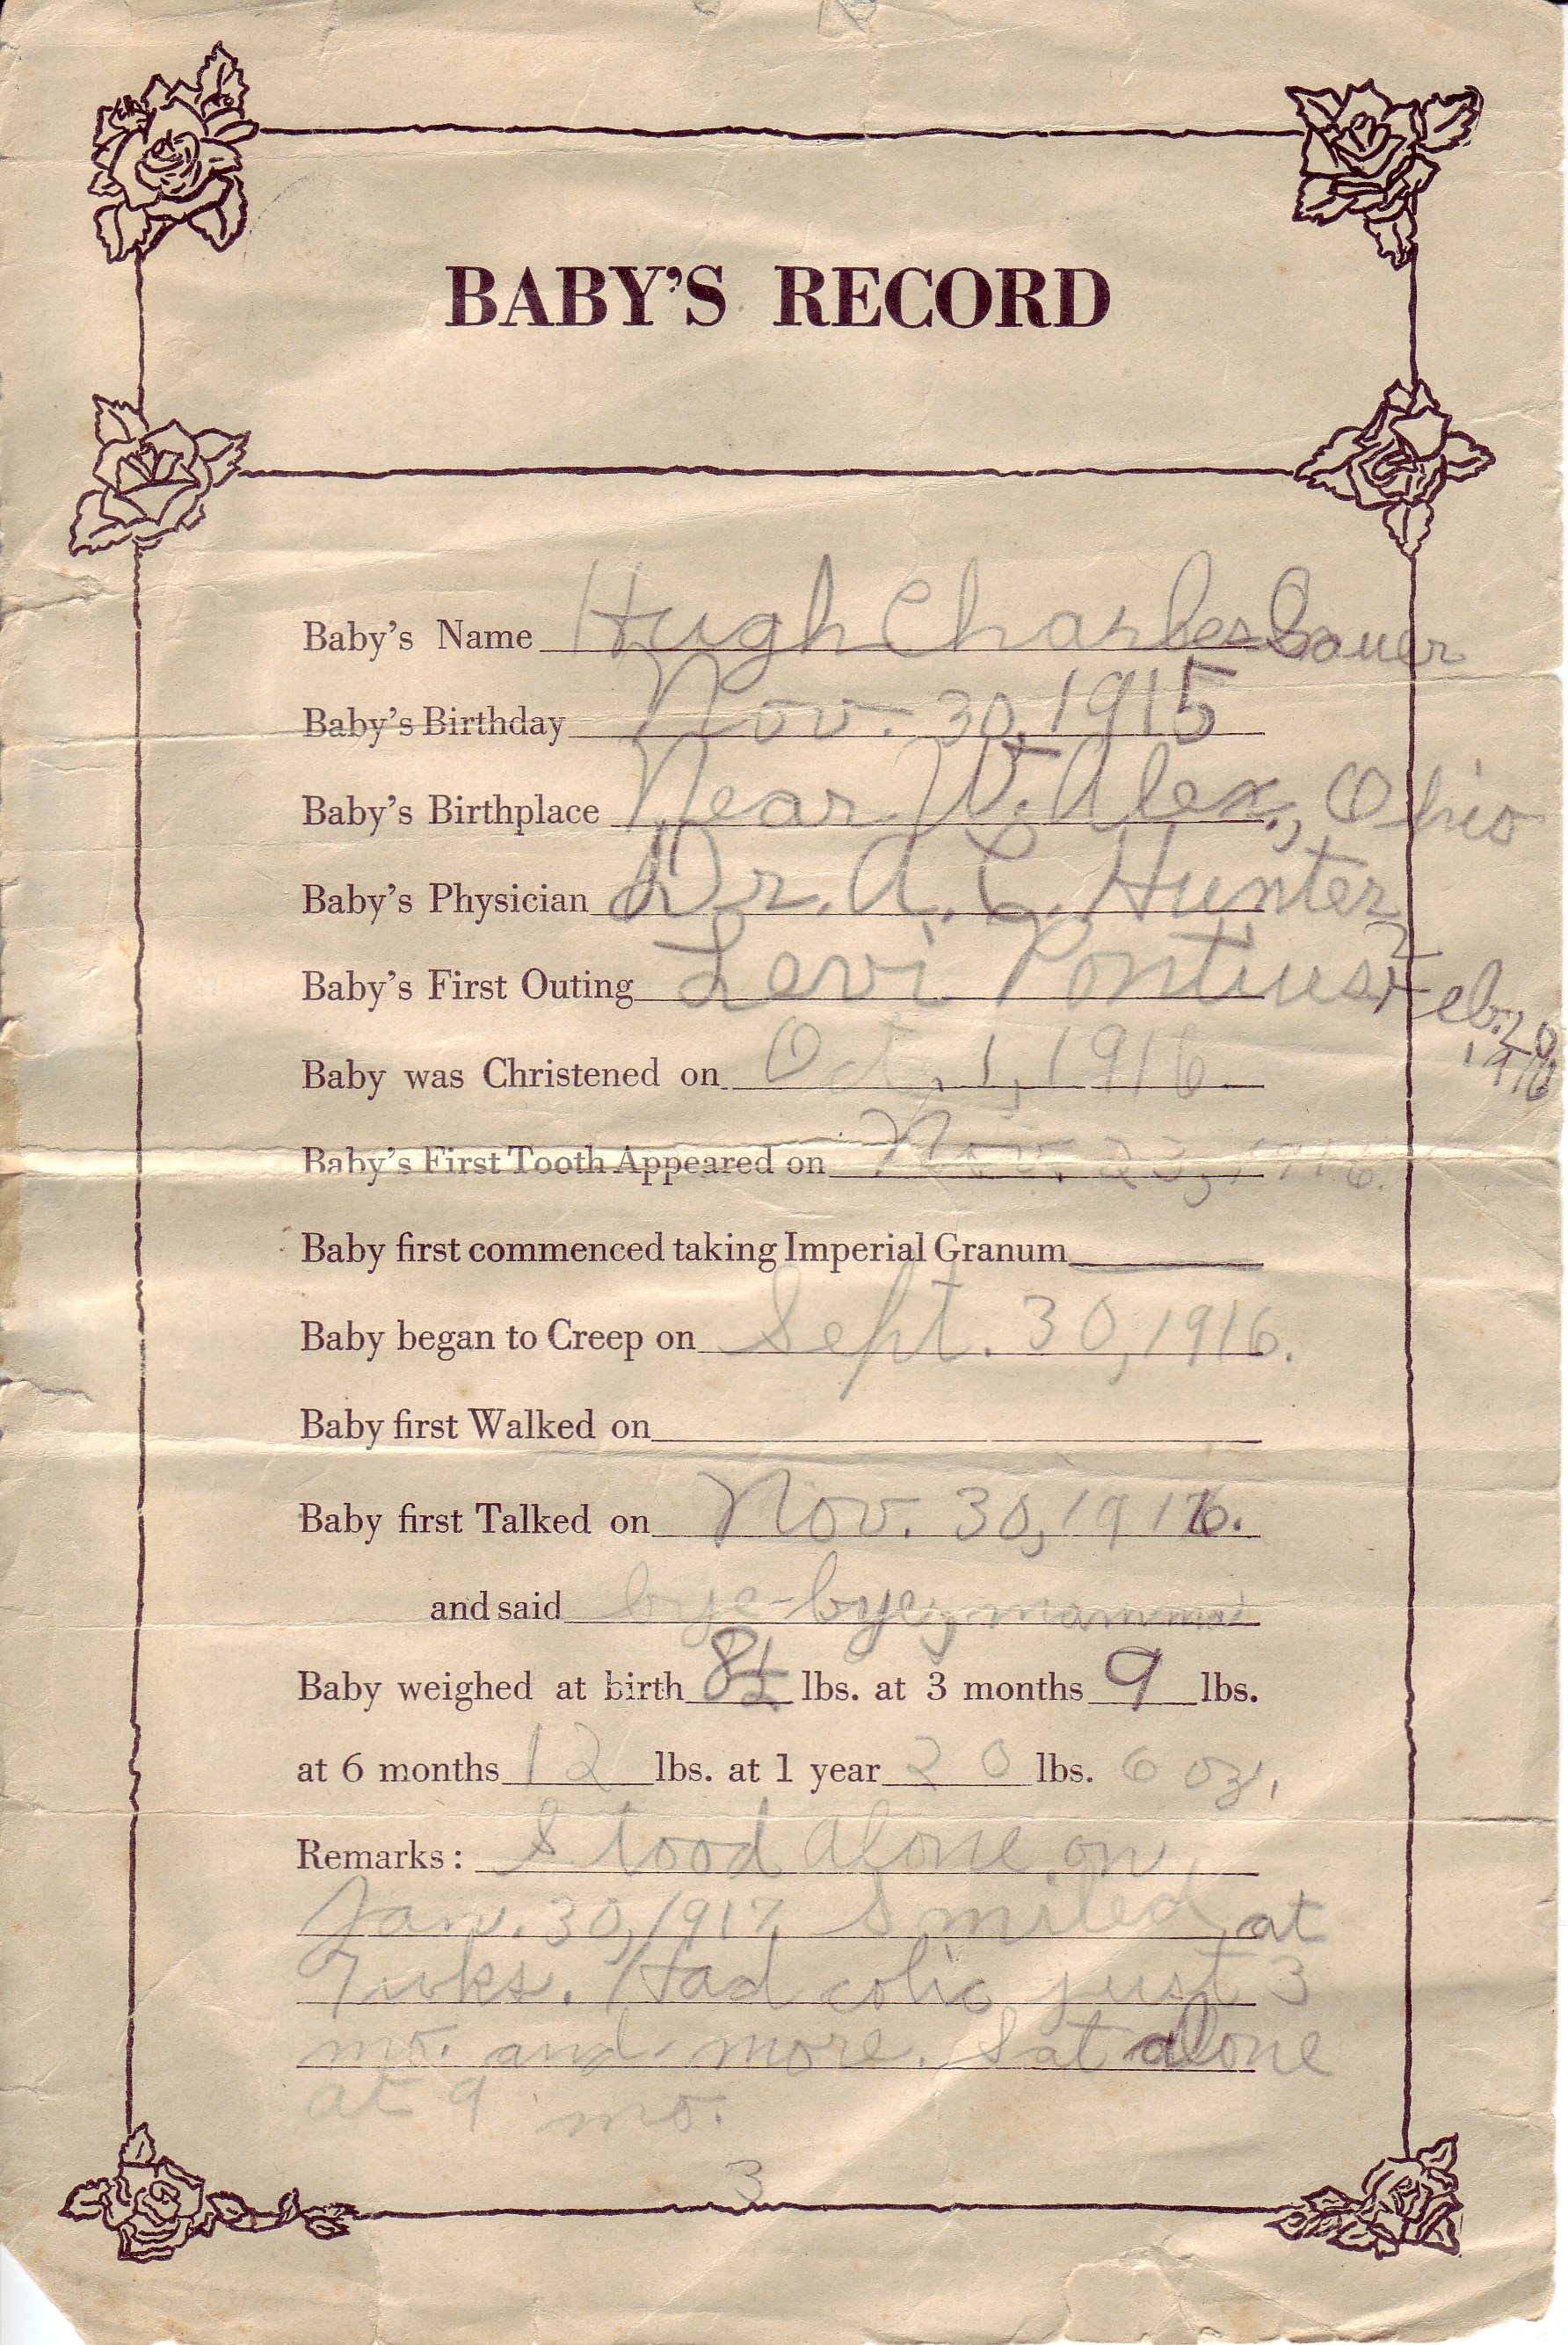 BABY'S RECORD
Baby's Name Hugh Charles Sauer
Baby's Birthday Nov. 30, 1915
Baby's Birthplace Near W. Alex., Ohio
Baby's Physician Dr. A. C. Hunter
Baby's First Outing Levi Pontius, Feb. 20, 1916
Baby was Christened on Oct. 1, 1916
Baby's First Tooth Appeared on Nov. 23, 1916.
Baby first commenced taking Imperial Granum
Baby began to Creep on Sept. 30, 1916.
Baby first Walked on
Baby first Talked on Nov. 30, 1916.
and said bye-bye, mamma
Baby weighed at birth 8½ lbs. at 3 months 9 lbs.
at 6 months 12 lbs. at 1 year 20 lbs. 6 oz.
Remarks: Stood alone on
Jan. 30, 1917 Smiled at
7 wks. Had colic just 3
mo. and more. Sat alone
at 9 mo.
3